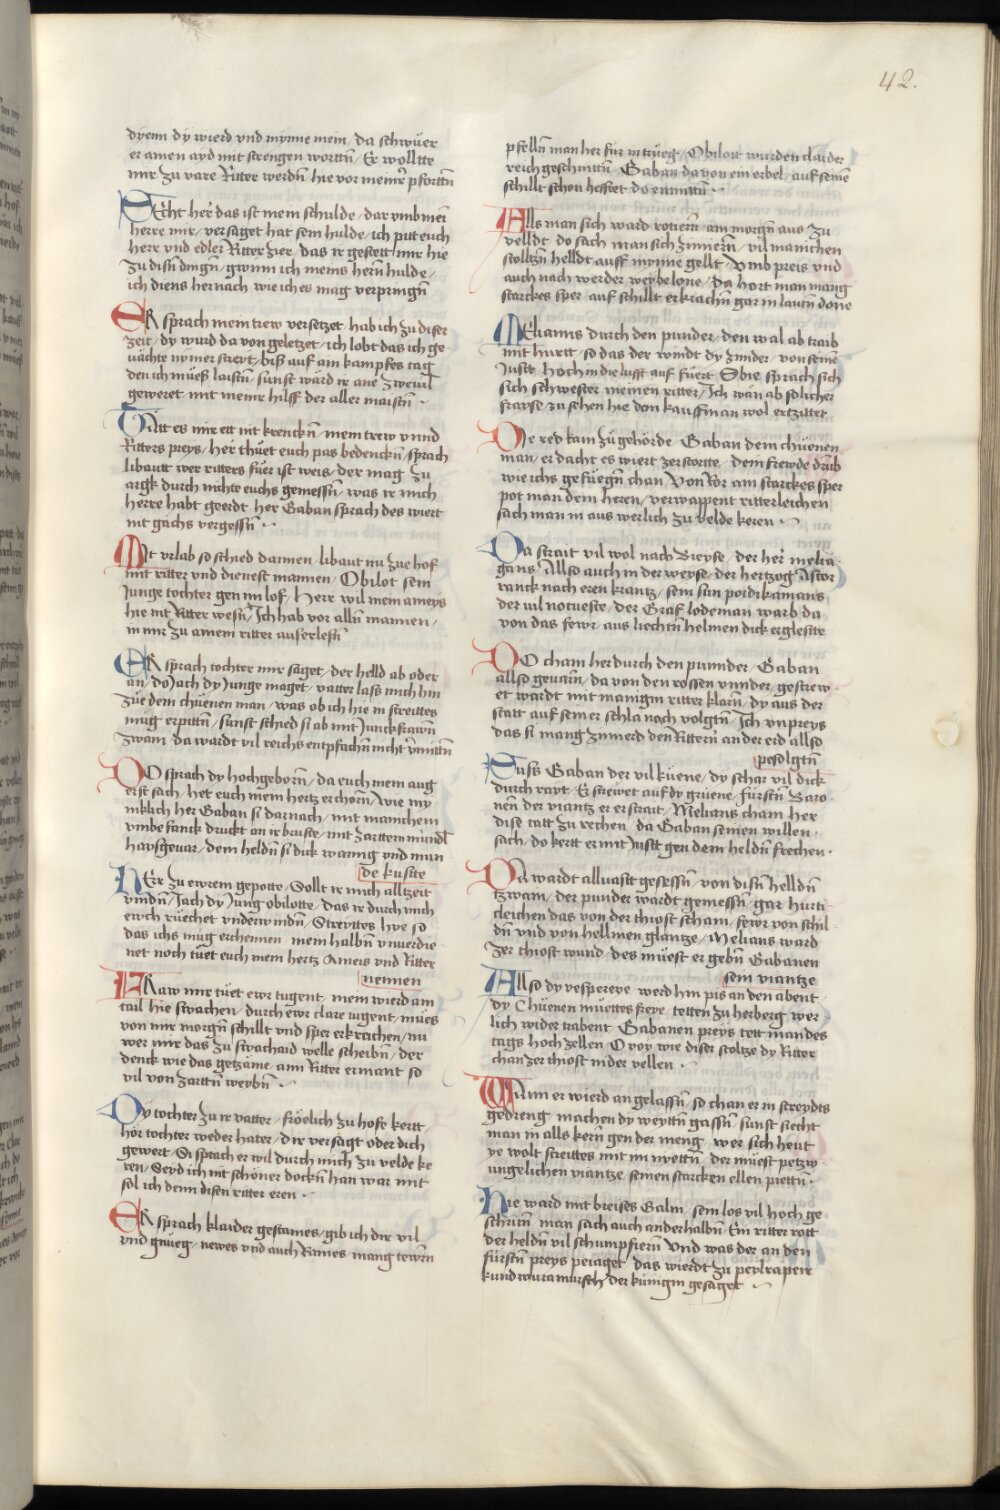 42.
dyenn dy wierd vnd mynne mein / da schwuer
er amen ayd mit strengen worttn̄ / Er wolltte
mir zu vare Ritter werdn̄ hie vor meinr̄ pforttn̄
Secht her das ist mein schulde / dar vmb mein
herre mir / versaget hat sein hulde / ich pitt euch
herr vnd edler Ritter zier / das ir gestett mir hie
zu disn̄ dingn̄ / gwinn ich meins hern̄ hulde /
ich diens hernach wie ich es mag verpringn̄
ER sprach mein trew versetzet hab ich zu diser
zeit / dy wird da von geletzet / ich lobt das ich ge
vächte nymer streyt / biss auf ain kampfes tag
den ich müess laistn̄ / sunst wärd ir ane zweiul
geweret mit meinr hilff der aller maistn̄
Tütt es mir ett nit krenckn̄ / mein trew vnnd
Ritters preys / her thüet euch pas bedenckn̄ / sprach
libautt wer ritters füer ist weis / der mag zu
argk durch nichte euchs gemessn̄ / was ir mich
herre habt geerdt her Gaban sprach des wiert
nit gachs vergessn̄
Mit vrlab so schied dannen / libaut nu zue hof
mit ritter vnd dienest mannen / Obilot sein
Junge tochter gen im lof / herr wil mein ameys
hie nit Ritter wesn̄ / Ich hab vor alln̄ mannen /
in mir zu amem ritter auserlesn̄
ER sprach tochter mir saget / der helld ab oder
an / do Jach dy Junge maget / vatter lass mich hin
züe dem chüenen man / was ob ich hie in streittes
müg erpittn̄ / sunst schied si ab mit Junckfrawn̄
zwain / da wardt vil reichs entpfachn̄ nicht vmittn̄
DO sprach dy hochgeborn̄ / da euch mein aug
erst sach / het euch mein hertz erchorn̄ / wie my
niklich her Gaban si darnach / mit manichem
vmbefanck druckt an ir bruste / mit zarttem mündl
havsgevar / dem heldn̄ si dick wannig vnd man
de kustte
HErr zu ewrem gepotte / Sollt ir mich alltzeit
vindn̄ / Jach dy Jung obilotte / das ir durch mich
ewch rüechet vnderwindn̄ / Streyttes hye so
das ichs müg erchennen mein halbn̄ vnuerdie
net noch tüet euch mein hertz Ameis vnd Ritter
nennen
FRaw mir tüet ewr tugent / mein wierd am
tail hie swachen / durch ewr clare iugent / mües
von mir morgn̄ schillt vnd sper erkrachen / nu
wer mir das zu swachaid welle scheibn̄ / der
denck wie das getzäme / aim Ritter ermant so
vil von zarttn̄ weybn̄
Dy tochter zu ir vatter / frölich zu hofe kertt
hör tochter weder hater / dir versagt oder dich
gewert / Si sprach er wil durch mich zu velde ke
ren / Seyd ich nit schöner dockn̄ han war mit
sol ich denn disen ritter eren
ER sprach klaider gestaines / gib ich dir vil
vnd gnüeg / newes vnd auch Raines / mang tewrn
pfelln̄ man her für in trüeg / Obilott wurden claider
reich geschnittn̄ / Gaban da von ein erbel / auf seinē
schillt schon hefftet do enmittn̄
Alls man sich ward rotiern̄ / am morgn̄ aus zu
velldt do sach man sich zimiern̄ / vil manichen
stolltzn̄ helldt auff mynne gellt / Vmb preis vnd
auch nach werder weybe lone / da hort man mang
starckes sper / auf schillt erkrachn̄ gar in lautn̄ done
Melianns durch den punder / den wal ab traib
mit hurtt / so das der windt dy zunder / von seinē
Justt hoch in die lufft auf fuert Obie sprach sich
sich schwester meinen ritter / Ich wän ab solicher
frayse / zu sehen hie den kauffman wol ertzitter
Die red kam zu gehörde Gaban dem chüenen
man / er dacht es wiert zerstortte / dem frewde dürb
wie ichs gefüegn̄ chan Von Kor am starckes sper
pot man dem heren / verwappent ritterleichen
sach man in aus werlich zu velde keren
Da strait vil wol nach Preyse / der her melia
gans Allso auch in der weyse / der hertzog Astor
ranck nach eren krantz / sein sun pordikamans
der vil notueste / der Graf lodeman warb da
von das fewr / aus liechtn̄ helmen dick erglestte
DO cham her durch den punnder / Gaban
allso geuarn̄ / da von den rossen vnnder / gestrew
et wardt mit manigm ritter klarn̄ / dy aus der
statt auf seiner schla nach volgtn̄ / Ich vnpreys
das si mang zimierd den Rittern̄ an der erd allso
pesolgtn̄
Suss Gaban der vil küene / dy schar vil dick
durch rayt / Er strewet auf dy grüene / fürstn̄ Baro
nen der vianntz er erstrait / Melianns cham her
dise tatt zu rechen / da Gaban seinen willen
sach / do kertt er mit Justt gen dem heldn̄ frechen
Da wardt alluastt gesessn̄ / von disn̄ helldn̄
tzwain / der punder wardt gemessn̄ / gar hurti
cleichen das von der thiost scham / fewr von schil
dn̄ vnd von hellmen glantze / Melians ward
zer thiost wund / des müest er gebn̄ Gabanen
sein viantze
Allso dy vespereye werd hin pis an den abent
dy Chüenen müettes freye tetten zu herberg wer
lich wider trabent Gabanen preys tett man des
tags hoch zellen O voy wie diser stoltze dy Ritter
chan zer thiost nider vellen
Wann er wierd angelassn̄ / so chan er in streydts
gedreng machen dy weyttn̄ gassn̄ / sunst siecht
man in alls kern̄ gen der meng wer sich heut
ye wolt streittes mit im nyettn̄ / der müest petzw
ungelichen viantze seinen starcken ellen piettn̄
Hie ward mit kreises Galm / sein los vil hoch ge
schrirn̄ man sach auch anderhalbn̄ / Ein ritter rott
der heldn̄ vil schumpfiern̄ Vnd was der an den
fürstn̄ preys peiaget das wierdt zu peylrapeir
kundwiramursch / der künigin gesaget